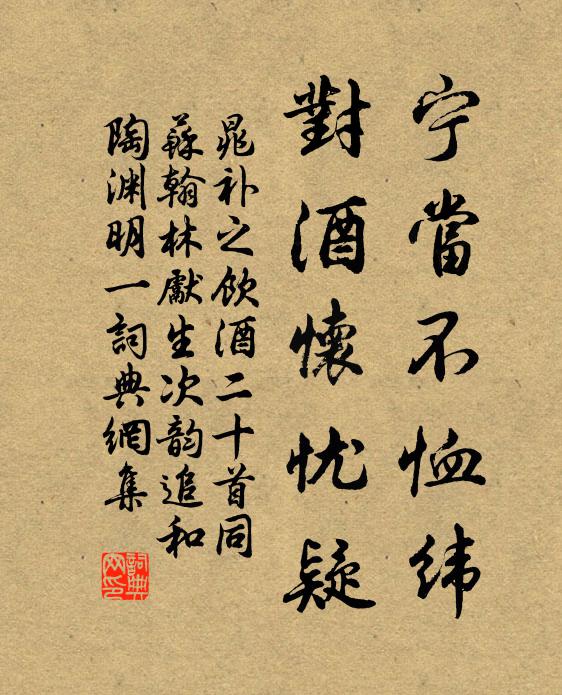 宁當不恤纬
對酒懷忧疑
晁补之飲酒二十首同
蘇翰林獻生次韵追和
陶渊明一詞典網集
詞典
网印